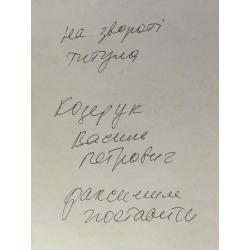 на звороті
титула
Козерук
Василь
петрович
факсиміле
поставити